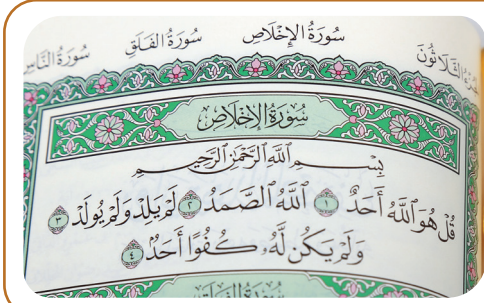 الجُزْءُ الثَّلَاثُونَ سُورَةُ الإِخْلَاصِ سُورَةُ الفَلَقِ سُورَةُ النَّاسِ
سُورَةُ الإِخْلَاصِ
بِسْمِ اللَّهِ الرَّحْمَٰنِ الرَّحِيمِ
قُلْ هُوَ اللَّهُ أَحَدٌ ١ اللَّهُ الصَّمَدُ ٢ لَمْ يَلِدْ وَلَمْ يُولَدْ ٣
وَلَمْ يَكُن لَّهُۥ كُفُوًا أَحَدٌۢ ٤
سُورَةُ الفَلَقِ